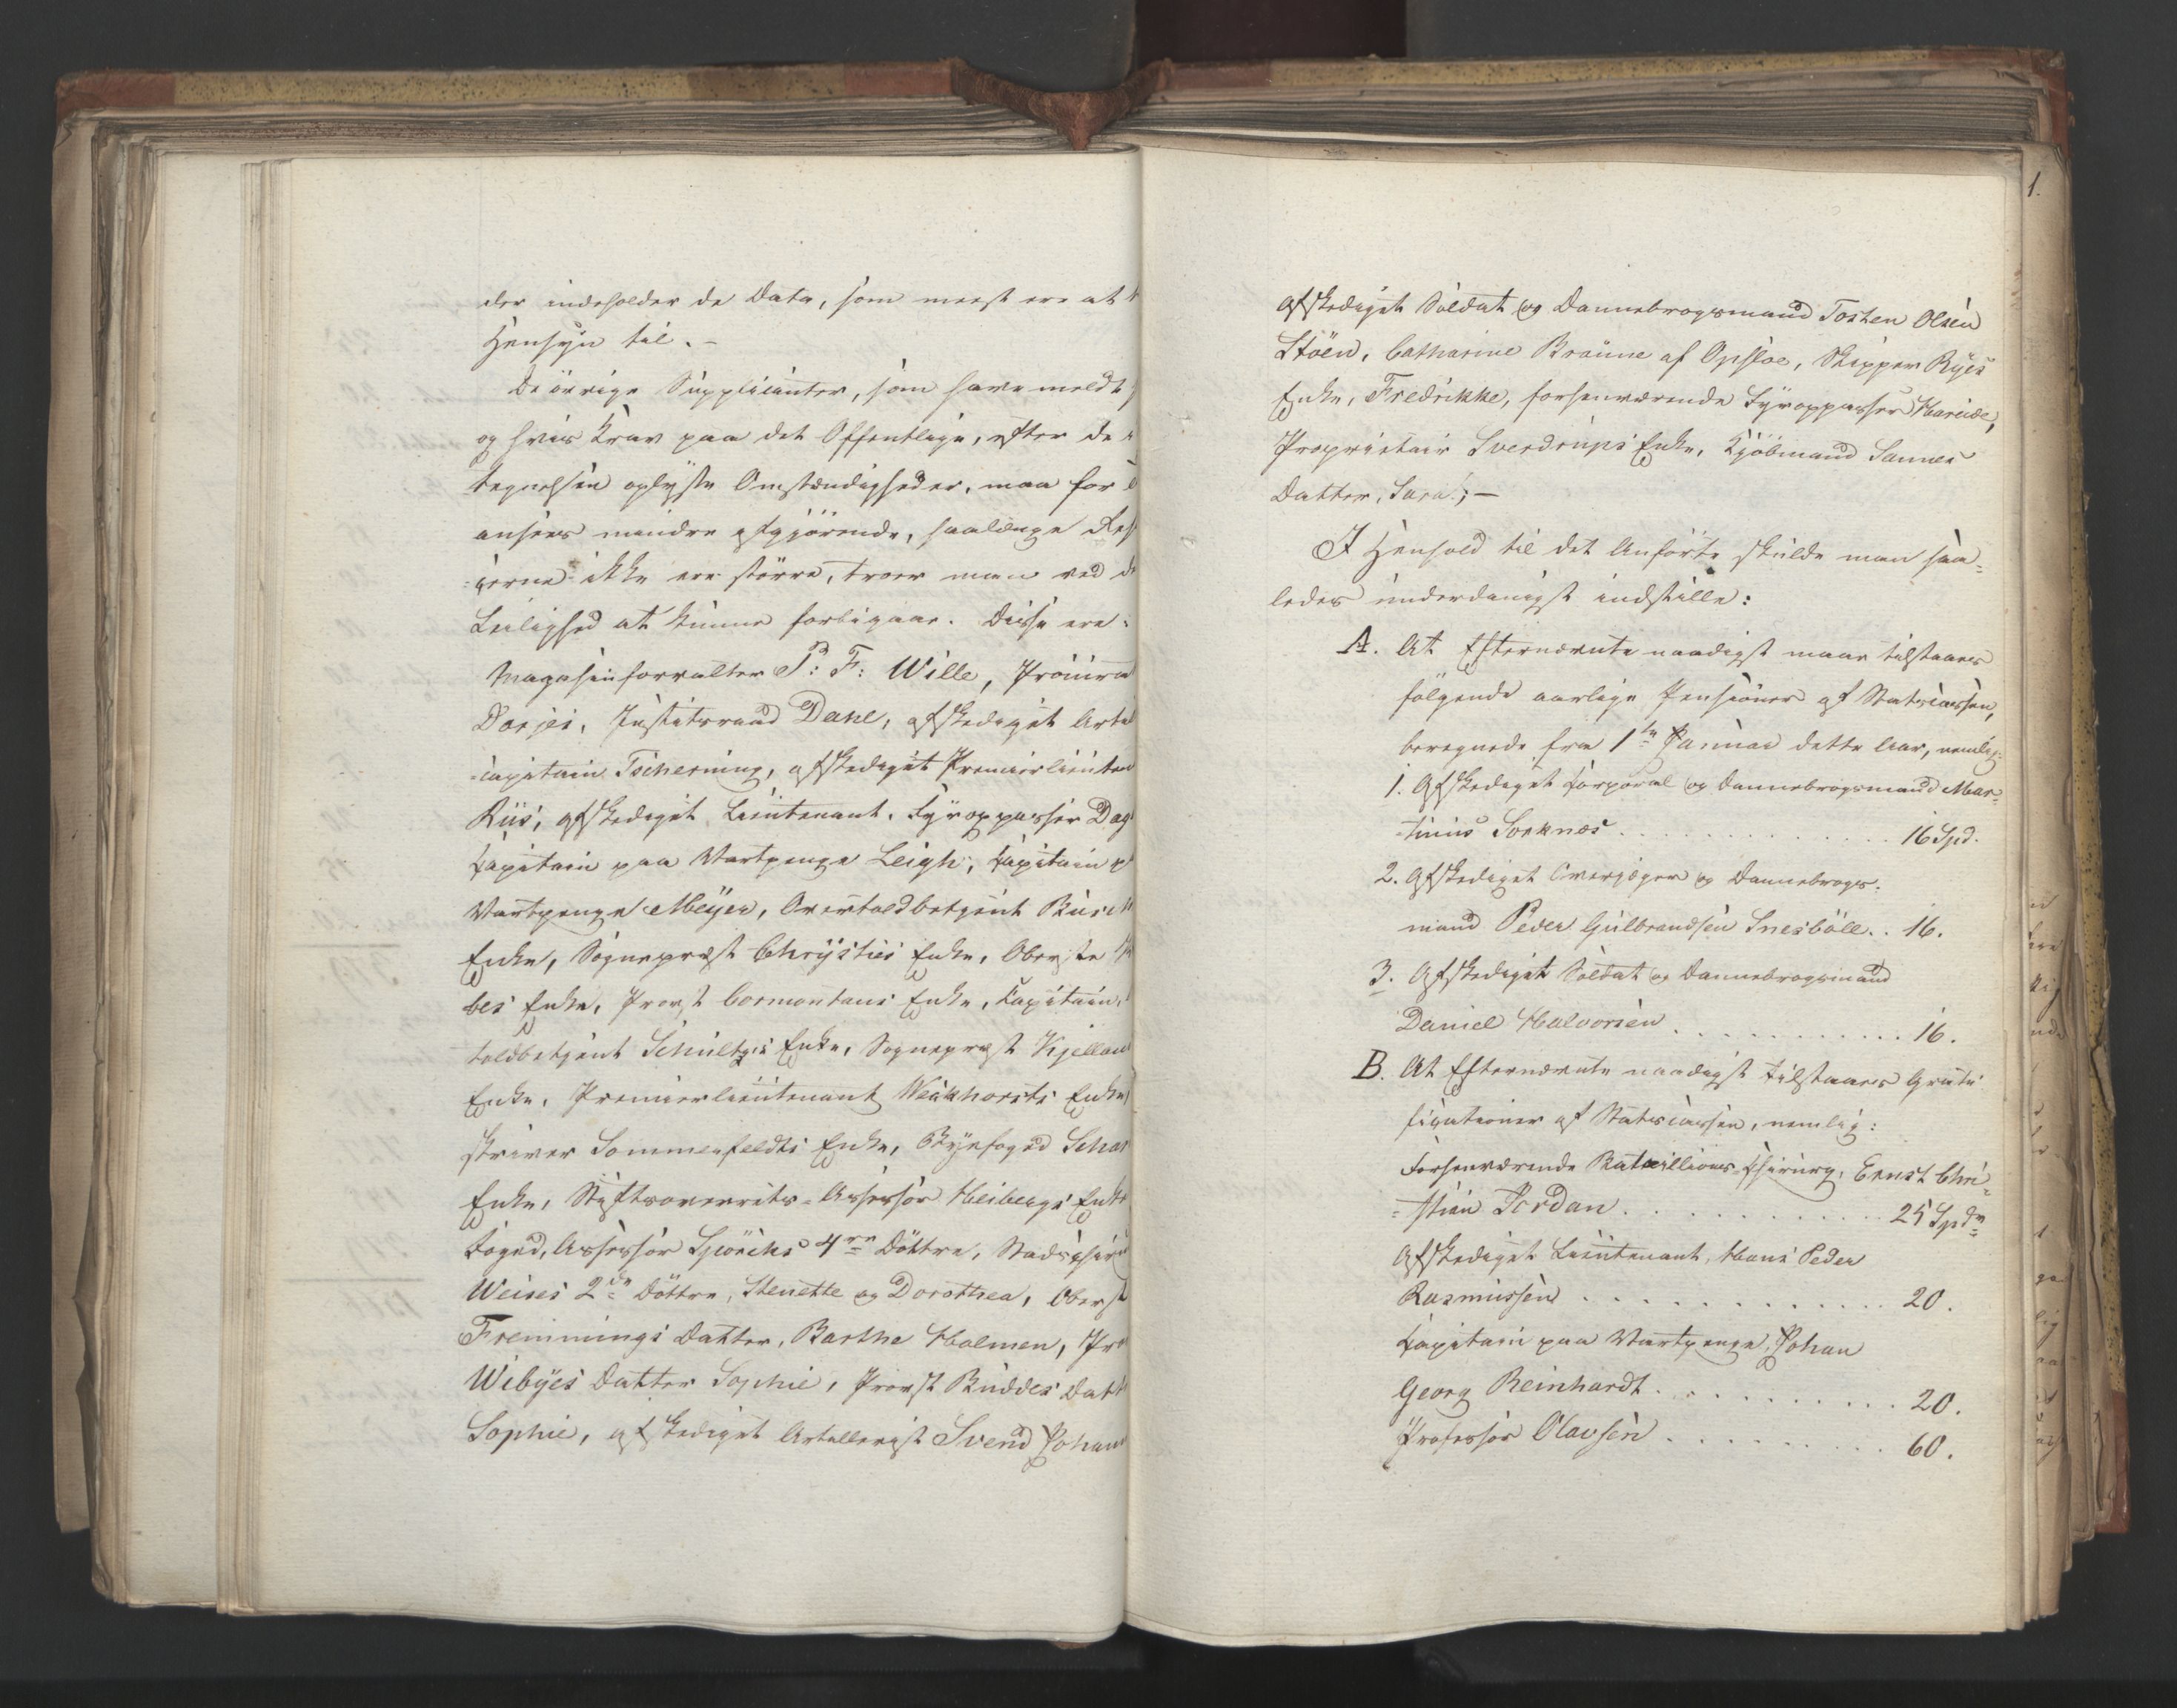 der indeholder de Data, som meest ere at t
Hensyn til. -
De övrige Supplicanter, som have meldt s
og hvis Krav paa det Offentlige, efter de i
tegnelsen oplyste Omstændigheder, maa for
ansees mindre afgjörende, saalænge Res
=cerne ikke ere större, troer man ved d
Leilighed at kunne forbigaae. Disse ere:
Magasinforvalter P: F: Wille, Provira
Borjes, Justitsraad Dahl, afskediget Artil
=capitain Tscherning, afskediget Premierlieuten
Riis, afskediget Lieutenant, Fyroppasser Dag
Capitain paa Vartpenge Leigh, Capitain p
Vartpenge Meyer, Overtoldbetjent Busch
Enke, Sognepræst Chrÿsties Enke, Oberste
bes Enke, Provst Cormontans Enke, Capitain,
toldbetjent Schultzes Enke, Sognepræst Kjellan
Enke, Premierlieutenant Weikhorsts Enke,
skriver Sommerfeldts Enke, Byefoged Schar
Enke, Stiftsoverrets-Assessor Heibergs Enke
Foged, Assessor Spörcks 4re Döttre, Stadschir
Weises 2de Döttre, Stenette og Dorothea, Oberst
Fremmings Datter, Barthe Holmen, Pro
Wibÿes Datter Sophie, Provst Buddes Datt
Sophie, afskediget Artillerist Svend Johan
1.
afskediget Soldat og Dannebrogsmand Tosten Olsen
Stöen, Catharine Braüne af Opsloe, Skipper Ryes
Enke, Fredrikke, forhenværende Fyroppasser Hareide,
Proprietair Sverdrups Enke, Kjöbmand Sannes
Datter, Sara; —
I Henhold til det Anförte skulde man saa=
ledes underdanigst indstille:
A. At Efternævnte naadigst maae tilstaaes
fölgende aarlige Pensioner af Statscassen,
beregnede fra 1ste Januar dette Aar, nemlig:
1. Afskediget Corporal og Dannebrogsmand Mar=
=tinus Sorknes . . . . . . . . 16 Spd.
2. Afskediget Overjæger og Dannebrogs=
mand Peder Gulbrandsen Snesböll . . 16.
3. Afskediget Soldat og Dannebrogsmand
Daniel Halvorsen . . . . . . . . 16.
B. At Efternævnte naadigst tilstaaes Grati
ficationer af Statscassen, nemlig:
Forhenværende Bataillions-Chirurg, Ernst Chri=
=stian Jordan . . . . . . . . 25 Spdr
Afskediget Lieutenant, Hans Peder
Rasmussen . . . . . . . . 20.
Capitain paa Vartpenge, Johan
Georg Reinhardt . . . . . . . . 20.
Professor Olavsen . . . . . . . . 60.